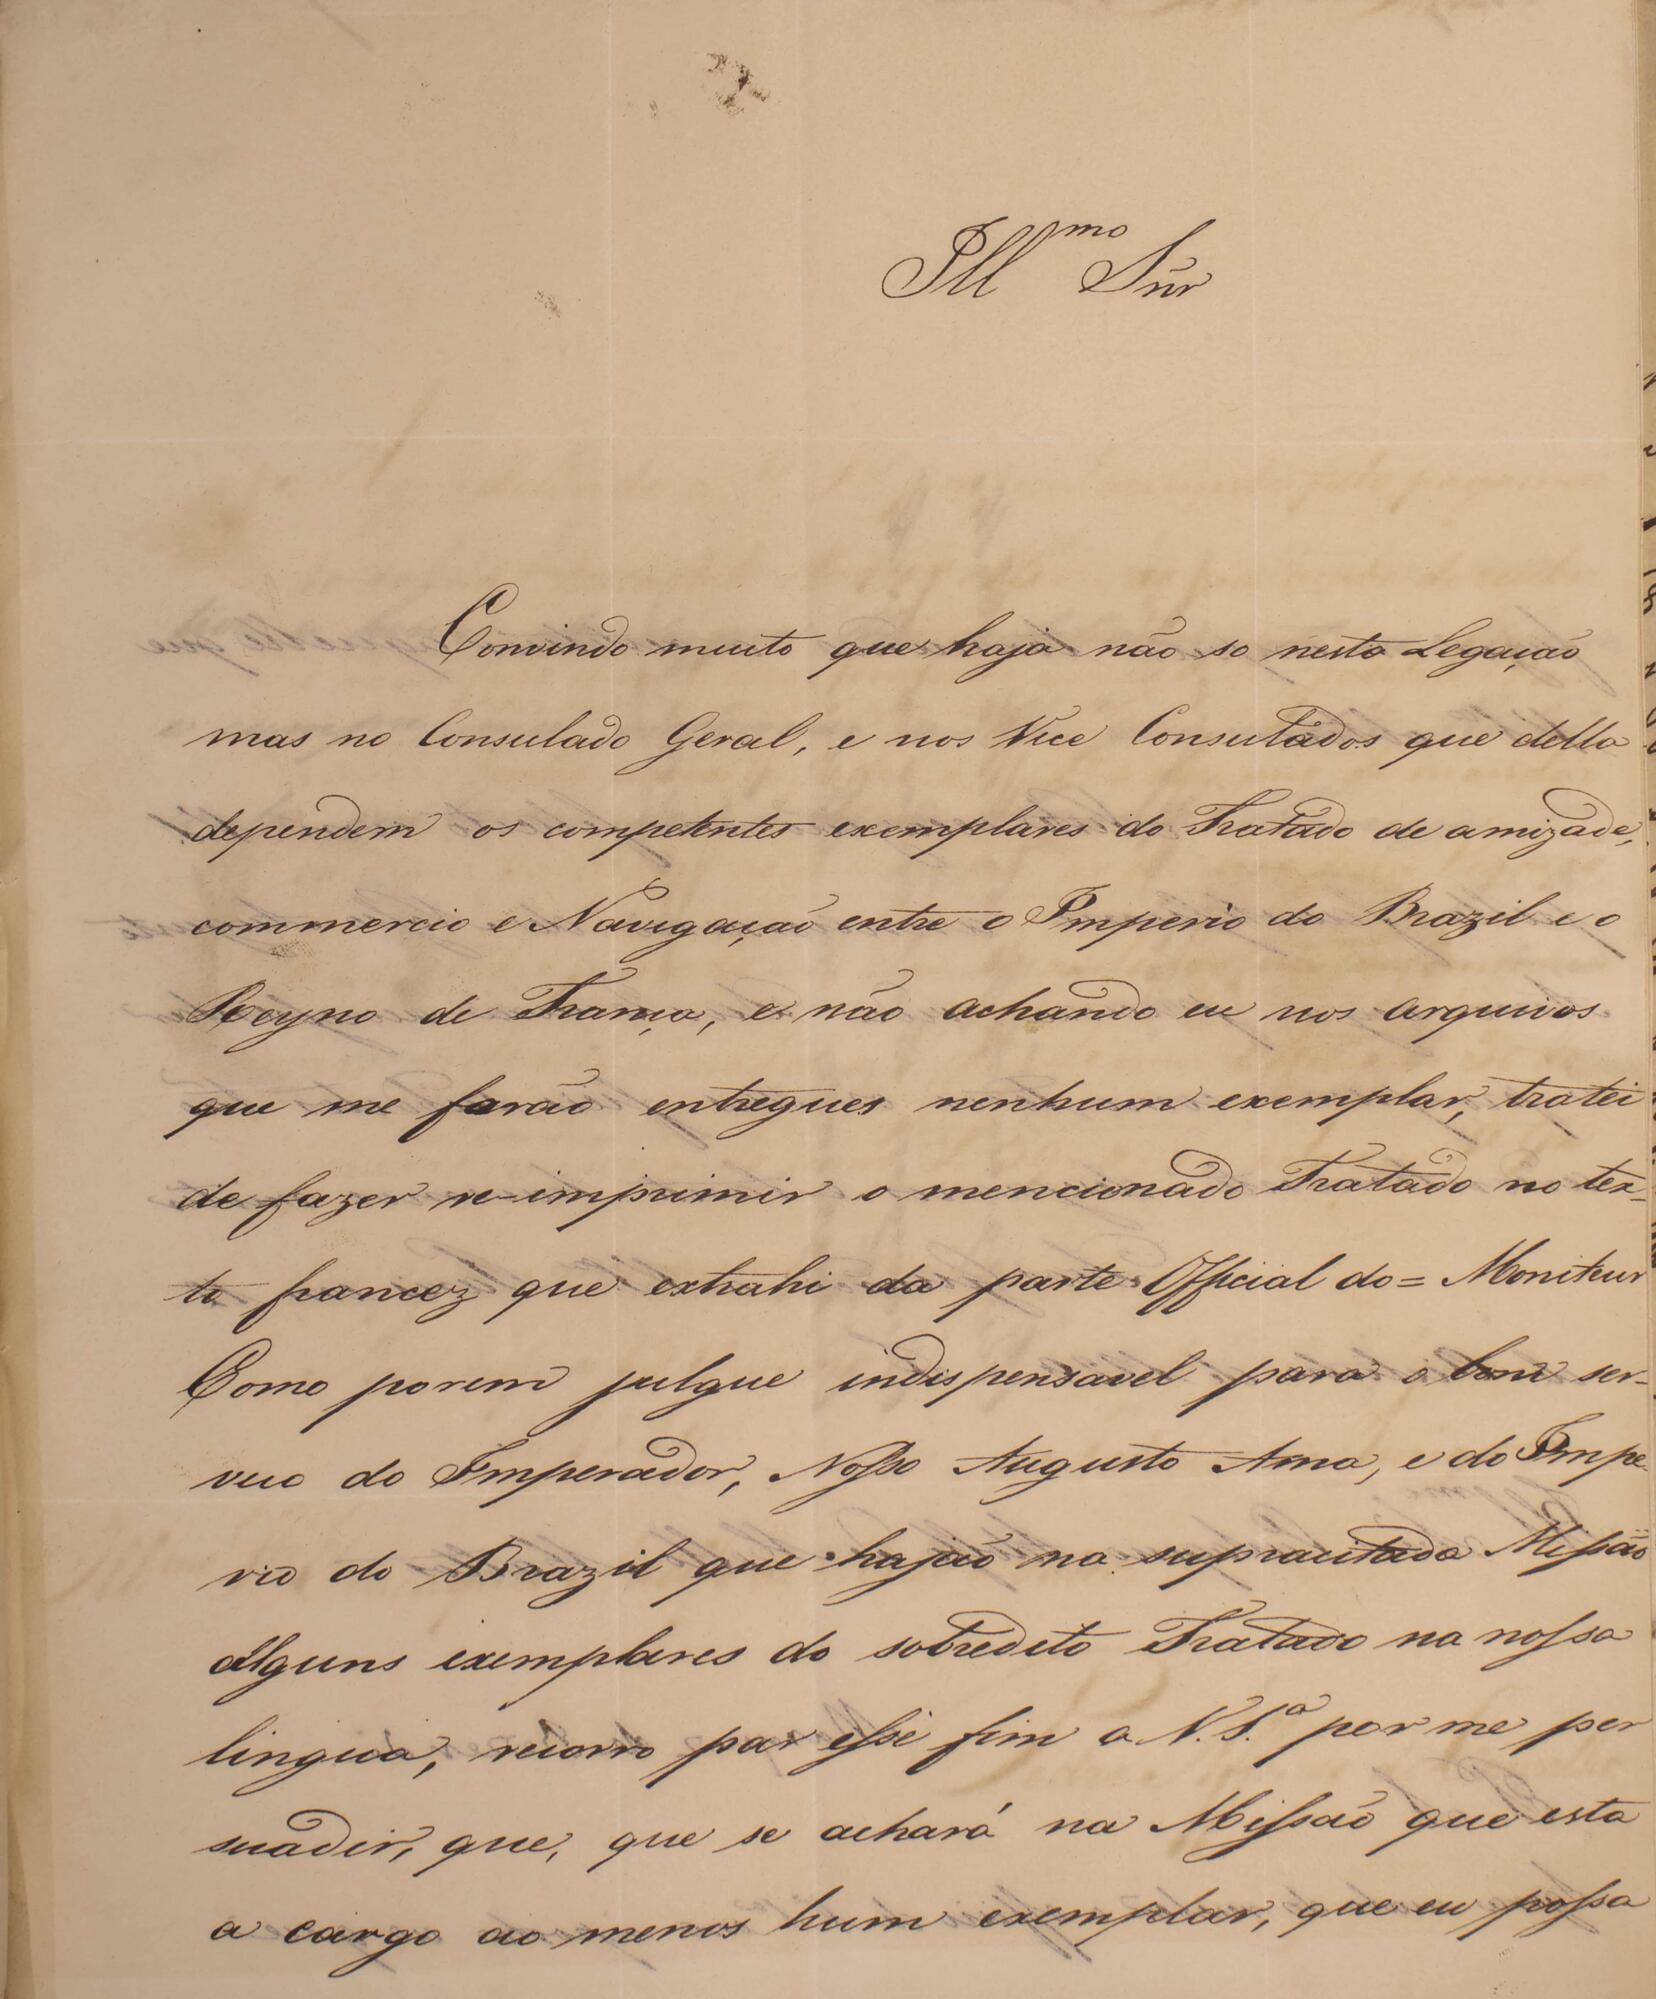 Ill.mo Snr
Convindo muito que haja não so nesta Legação
mas no Consulado Geral, e nos Vice Consulados que della
dependem os competentes exemplares do Tratado de amizade,
commercio e Navigação entre o Imperio do Brazil e o
Reyno de França, e não achando eu nos arquivos
que me forão entregues nenhum exemplar, tratei
de fazer re-imprimir o mencionado Tratado no tex-
to francez que extrahi da parte Official do = Moniteur
Como porem julgue indispensavel para o bom ser-
vico do Imperador, Nosso Augusto Amo, e do Impe-
rio do Brazil que hajão na supracitada Missão
alguns exemplares do sobredito Tratado na nossa
lingua, recorro par esse fim a V. S.a por me per
suadir, que, que se achará na Missão que esta
a cargo ao menos hum exemplar, que eu possa